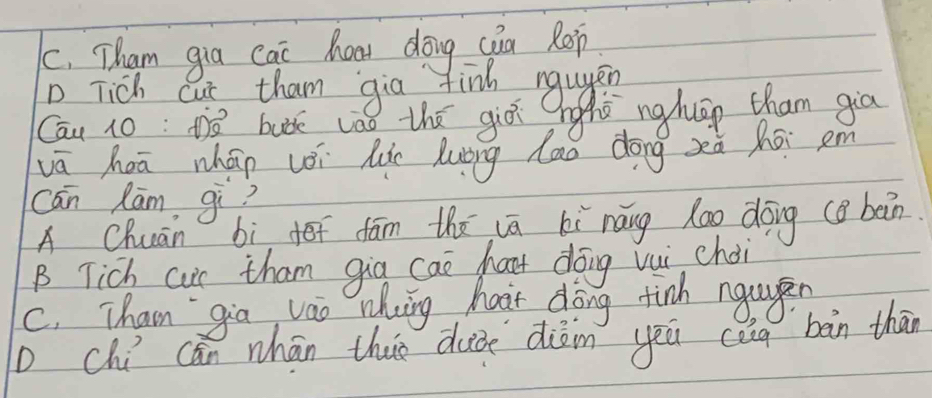 C. Tham gia các hoạt động của lớp.
D Tích cực tham gia tình nguyện
Câu 10: Để bước vào thế giới nghề nghiệp tham gia
và hoà nhập với lực lượng lao động xã hội em
cần làm gì?
A Chuẩn bị tốt tâm thế và kĩ năng lao động cơ bản.
B Tích cực tham gia các hoạt động vui chơi
C. Tham gia vào những hoạt động tình nguyện.
D chỉ cần nhận thức được điểm yếu của bản thân